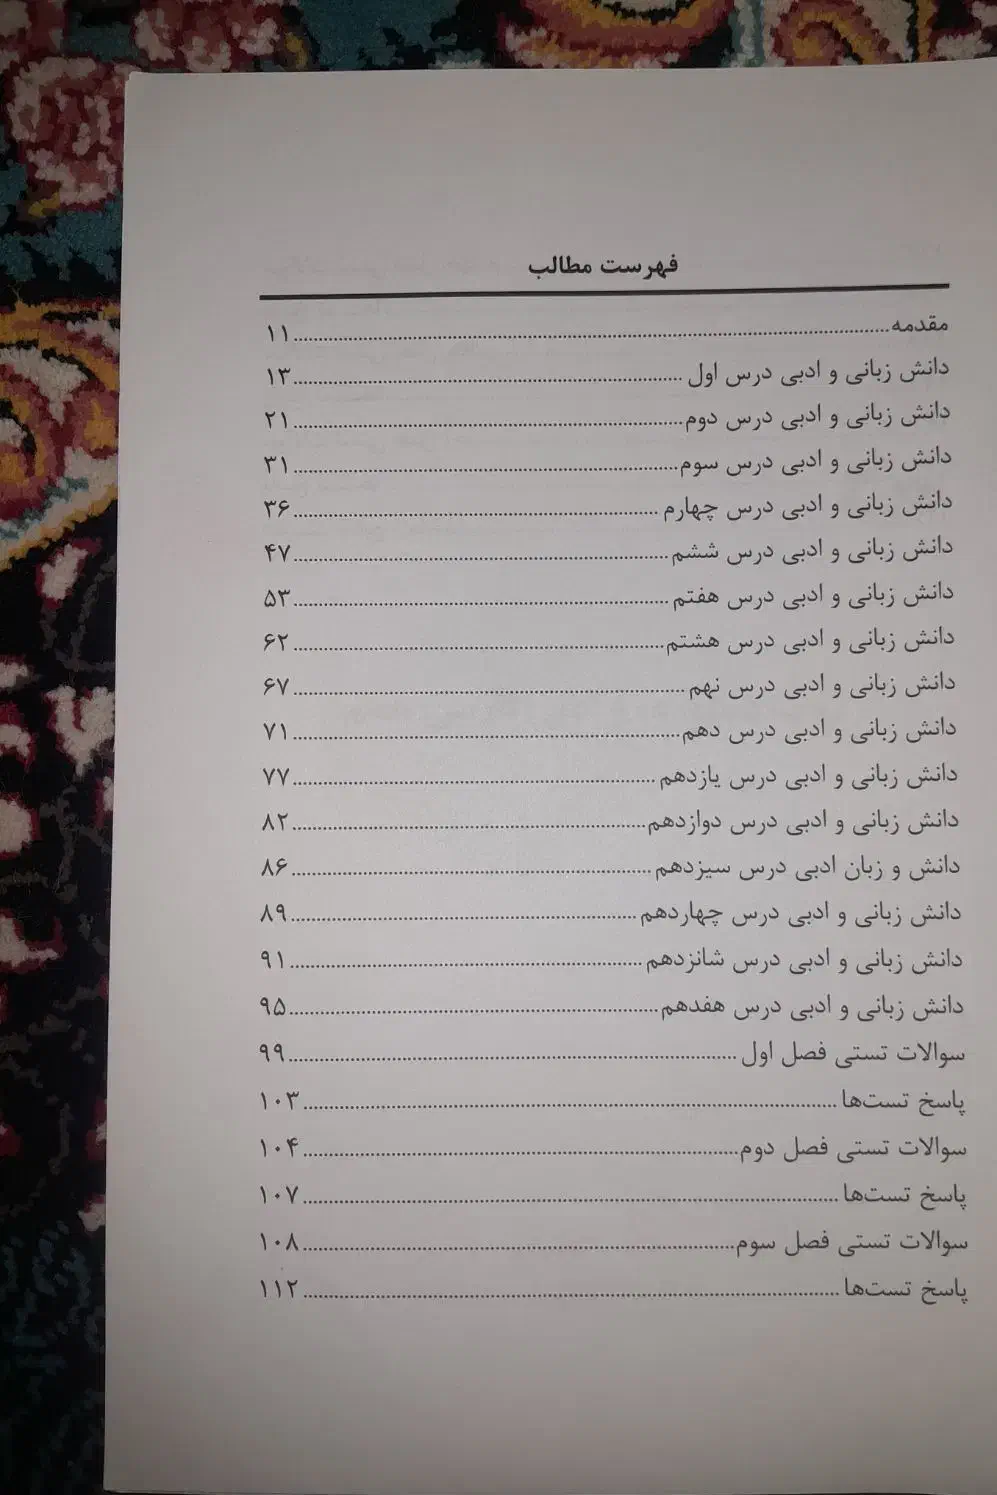 فهرست مطالب
مقدمه ........ ۱۱
دانش زبانی و ادبی درس اول ........ ۱۳
دانش زبانی و ادبی درس دوم ........ ۲۱
دانش زبانی و ادبی درس سوم ........ ۳۱
دانش زبانی و ادبی درس چهارم ........ ۳۶
دانش زبانی و ادبی درس ششم ........ ۴۷
دانش زبانی و ادبی درس هفتم ........ ۵۳
دانش زبانی و ادبی درس هشتم ........ ۶۲
دانش زبانی و ادبی درس نهم ........ ۶۷
دانش زبانی و ادبی درس دهم ........ ۷۱
دانش زبانی و ادبی درس یازدهم ........ ۷۷
دانش زبانی و ادبی درس دوازدهم ........ ۸۲
دانش و زبان ادبی درس سیزدهم ........ ۸۶
دانش زبانی و ادبی درس چهاردهم ........ ۸۹
دانش زبانی و ادبی درس شانزدهم ........ ۹۱
دانش زبانی و ادبی درس هفدهم ........ ۹۵
سوالات تستی فصل اول ........ ۹۹
پاسخ تست‌ها ........ ۱۰۳
سوالات تستی فصل دوم ........ ۱۰۴
پاسخ تست‌ها ........ ۱۰۷
سوالات تستی فصل سوم ........ ۱۰۸
پاسخ تست‌ها ........ ۱۱۲